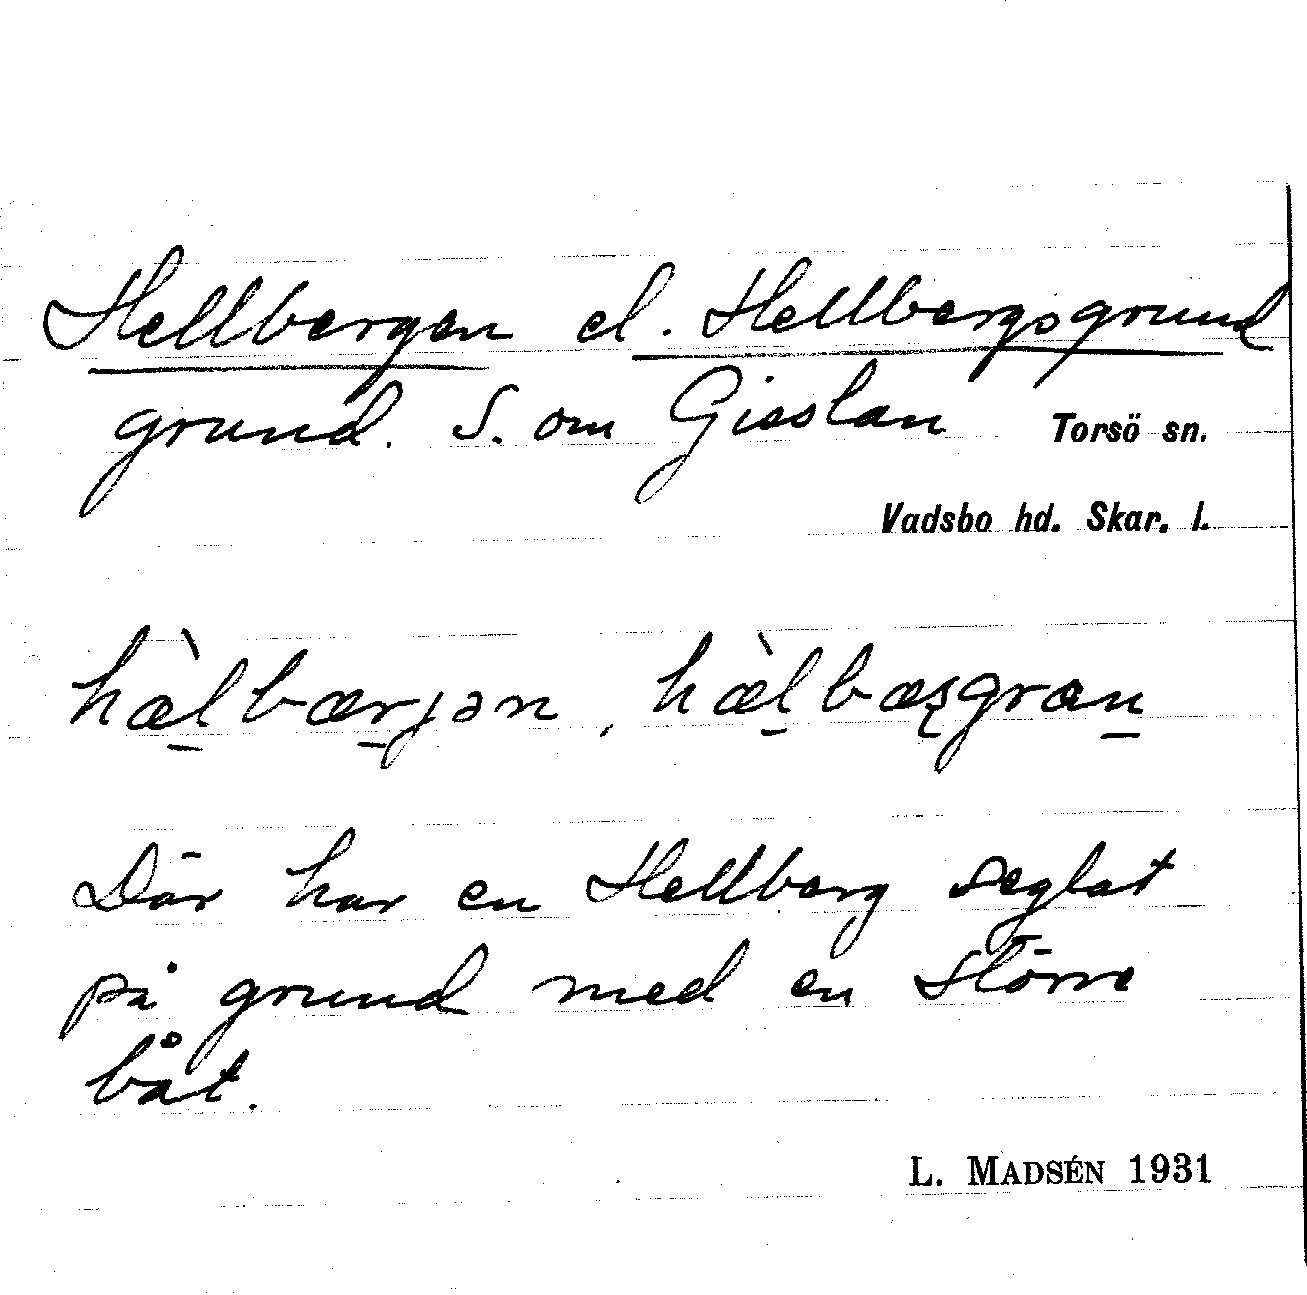 Hellbergen el. Hellbergsgrund
grund. S. om Gisslan Torsö sn.
Vadsbo hd. Skar. l.
hæ̀l̠bær̠jən, hæ̀l̠bæʂgrən̠
Där har en Hellberg seglat
på grund med en större
båt.
L. MADSÉN 1931